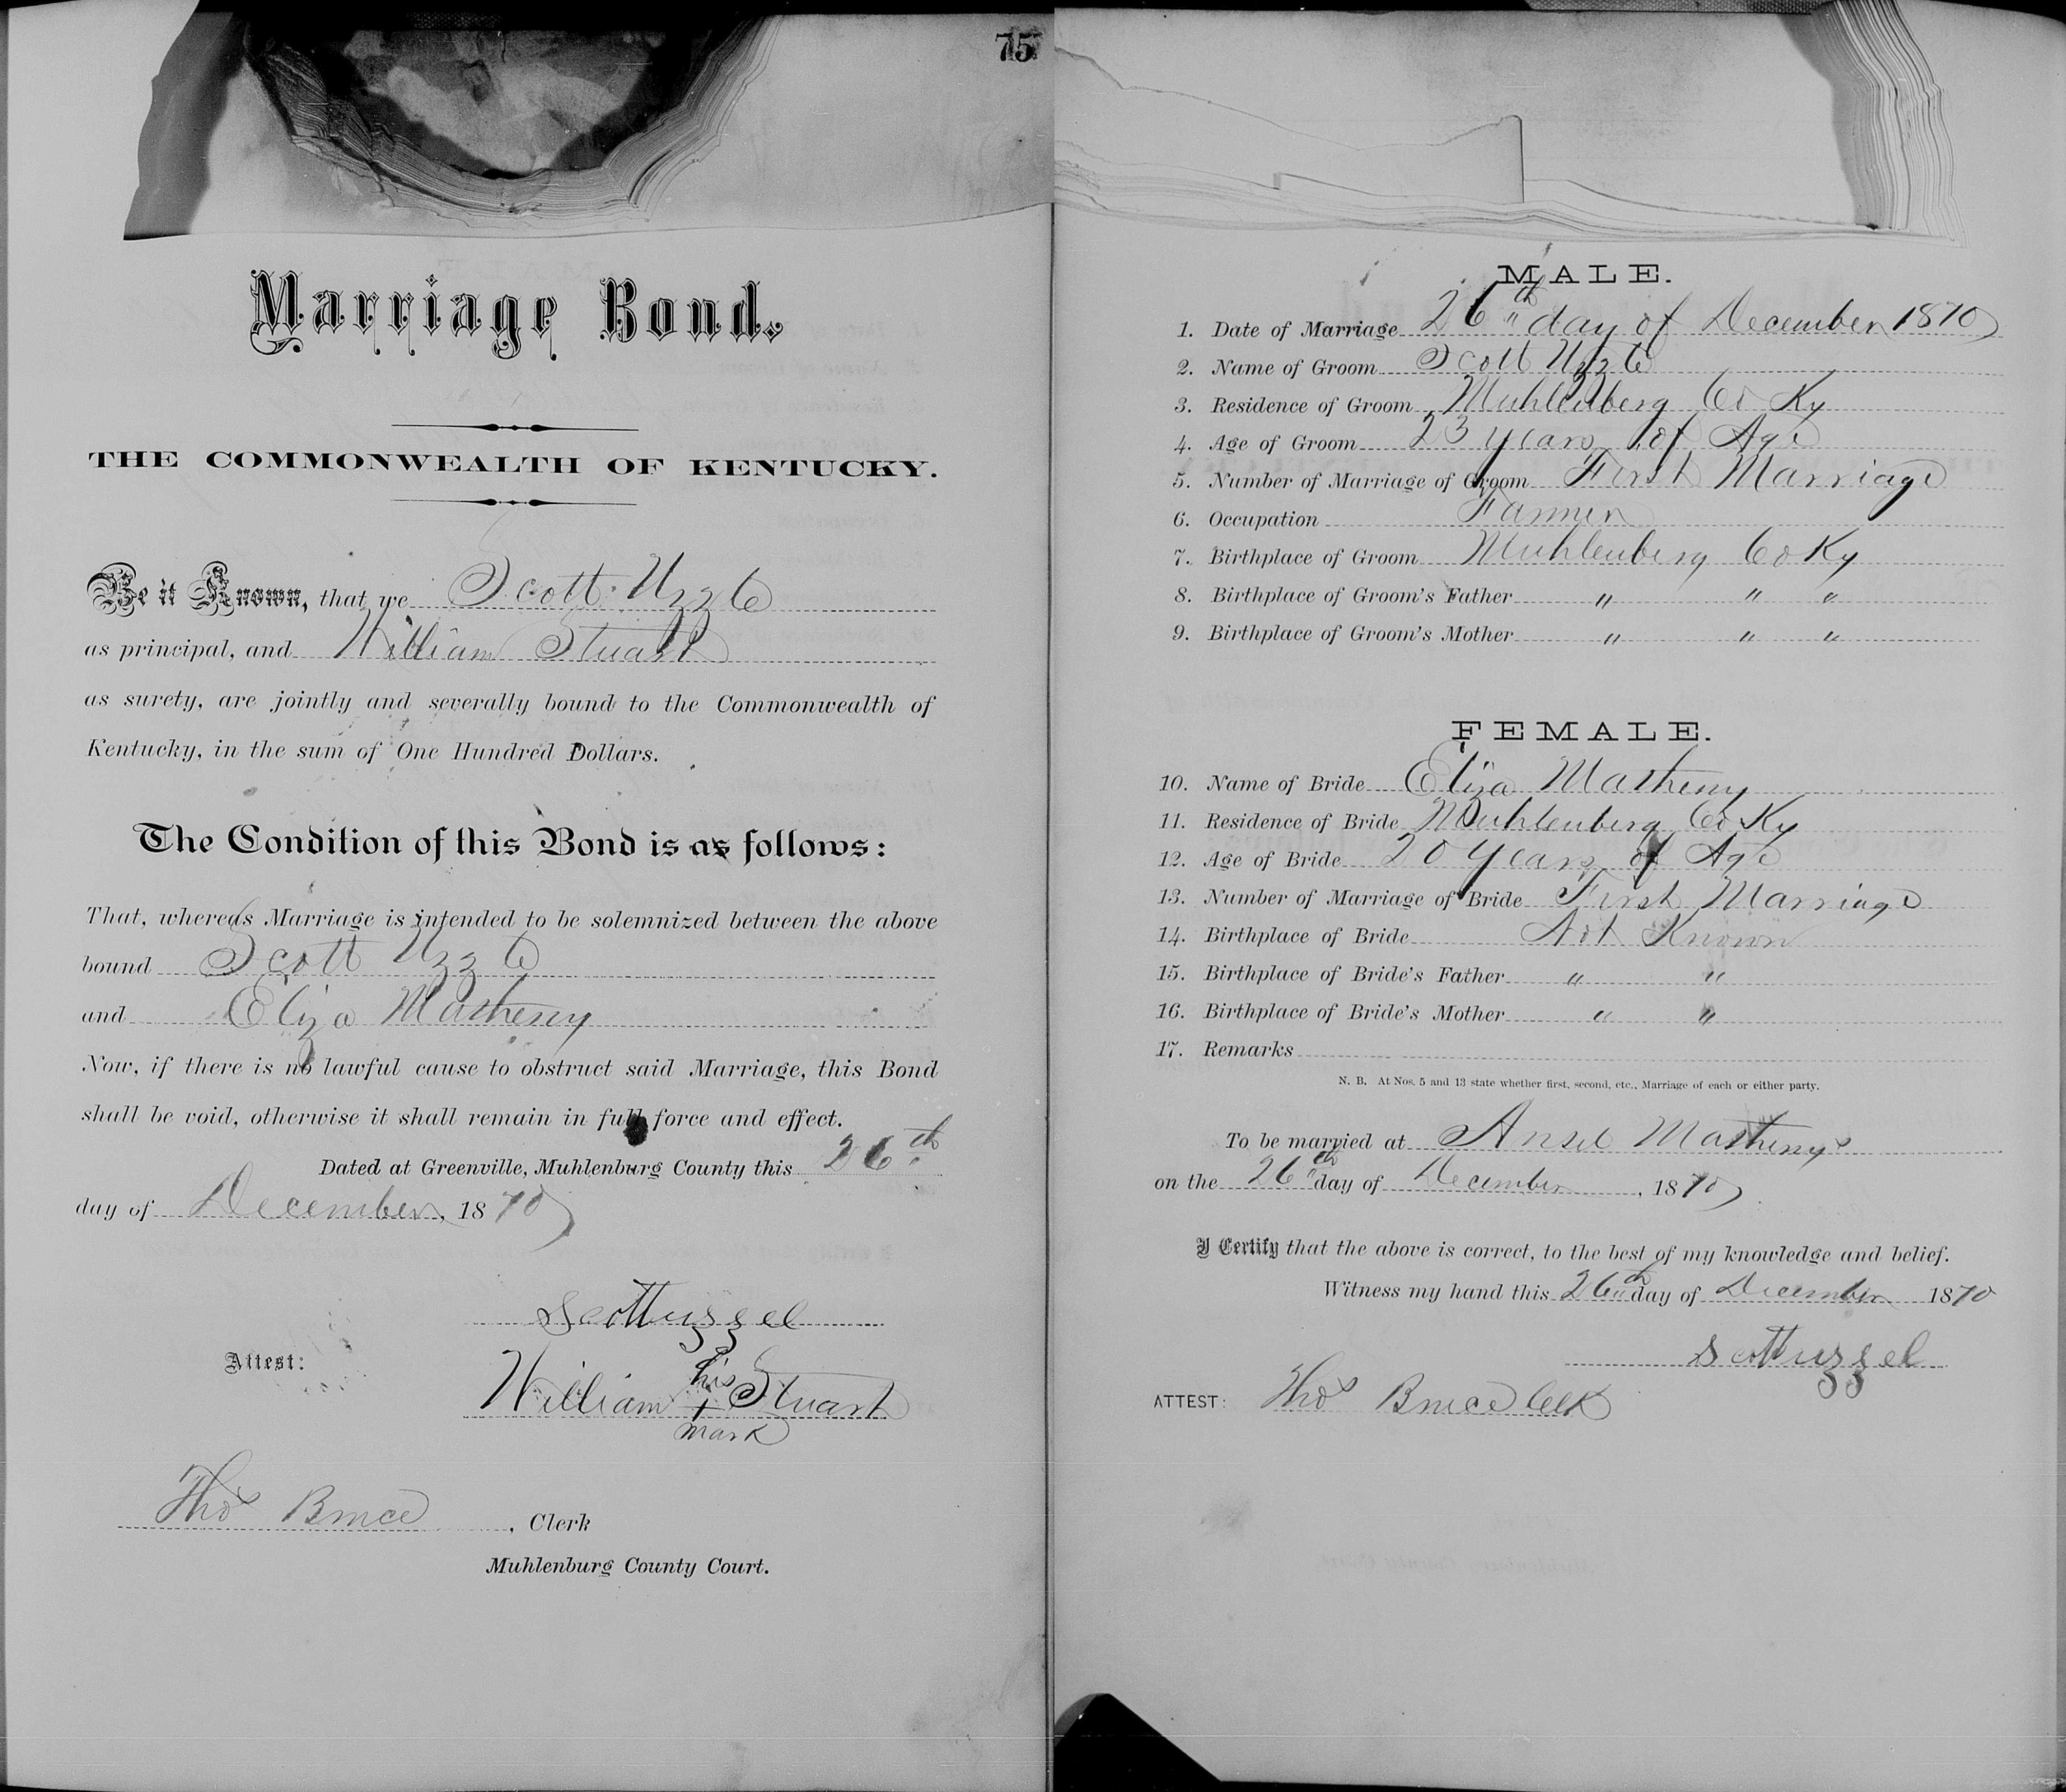 75
Marriage Bond.
THE COMMONWEALTH OF KENTUCKY.
Be it Known, that we Scott Uzzle
as principal, and William Stuart
as surety, are jointly and severally bound to the Commonwealth of
Kentucky, in the sum of One Hundred Dollars.
The Condition of this Bond is as follows:
That, whereas Marriage is intended to be solemnized between the above
bound Scott Uzzle
and Eliza Matheny
Now, if there is no lawful cause to obstruct said Marriage, this Bond
shall be void, otherwise it shall remain in full force and effect.
Dated at Greenville, Muhlenburg County this 26th
day of December, 1870
Scott uzzel
Attest:
his
William + Stuart
mark
Thos Bruce, Clerk
Muhlenburg County Court.
MALE.
1. Date of Marriage 26th day of December 1870
2. Name of Groom Scott Uzzle
3. Residence of Groom Muhlenberg Co Ky
4. Age of Groom 23 years of Age
5. Number of Marriage of Groom First Marriage
6. Occupation Farmer
7. Birthplace of Groom Muhlenberg Co Ky
8. Birthplace of Groom's Father " " "
9. Birthplace of Groom's Mother " " "
FEMALE.
10. Name of Bride Eliza Matheny
11. Residence of Bride Muhlenberg Co Ky
12. Age of Bride 20 years of Age
13. Number of Marriage of Bride First Marriage
14. Birthplace of Bride Not Known
15. Birthplace of Bride's Father " "
16. Birthplace of Bride's Mother " "
17. Remarks
N. B. At Nos. 5 and 13 state whether first, second, etc., Marriage of each or either party.
To be married at Ansel Mathenys
on the 26th day of December, 1870
I Certify that the above is correct, to the best of my knowledge and belief.
Witness my hand this 26th day of December 1870
Scott uzzel
ATTEST: Thos Bruce Clk